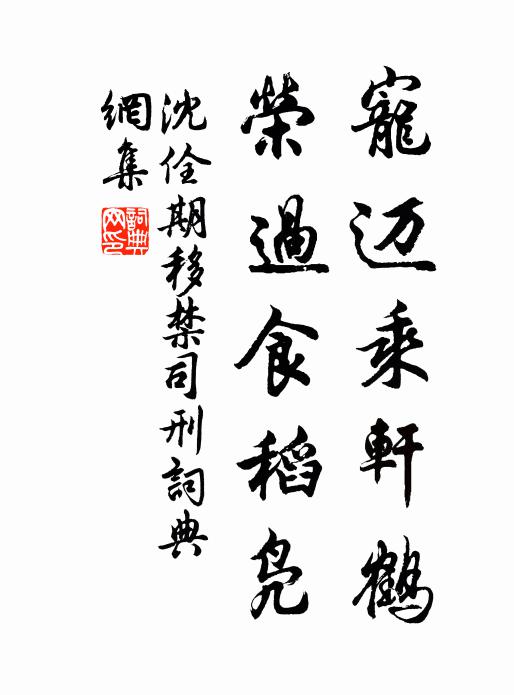 寵迈乘軒鶴
榮過食稻凫
沈佺期移禁司刑詞典
網集
詞典
网印